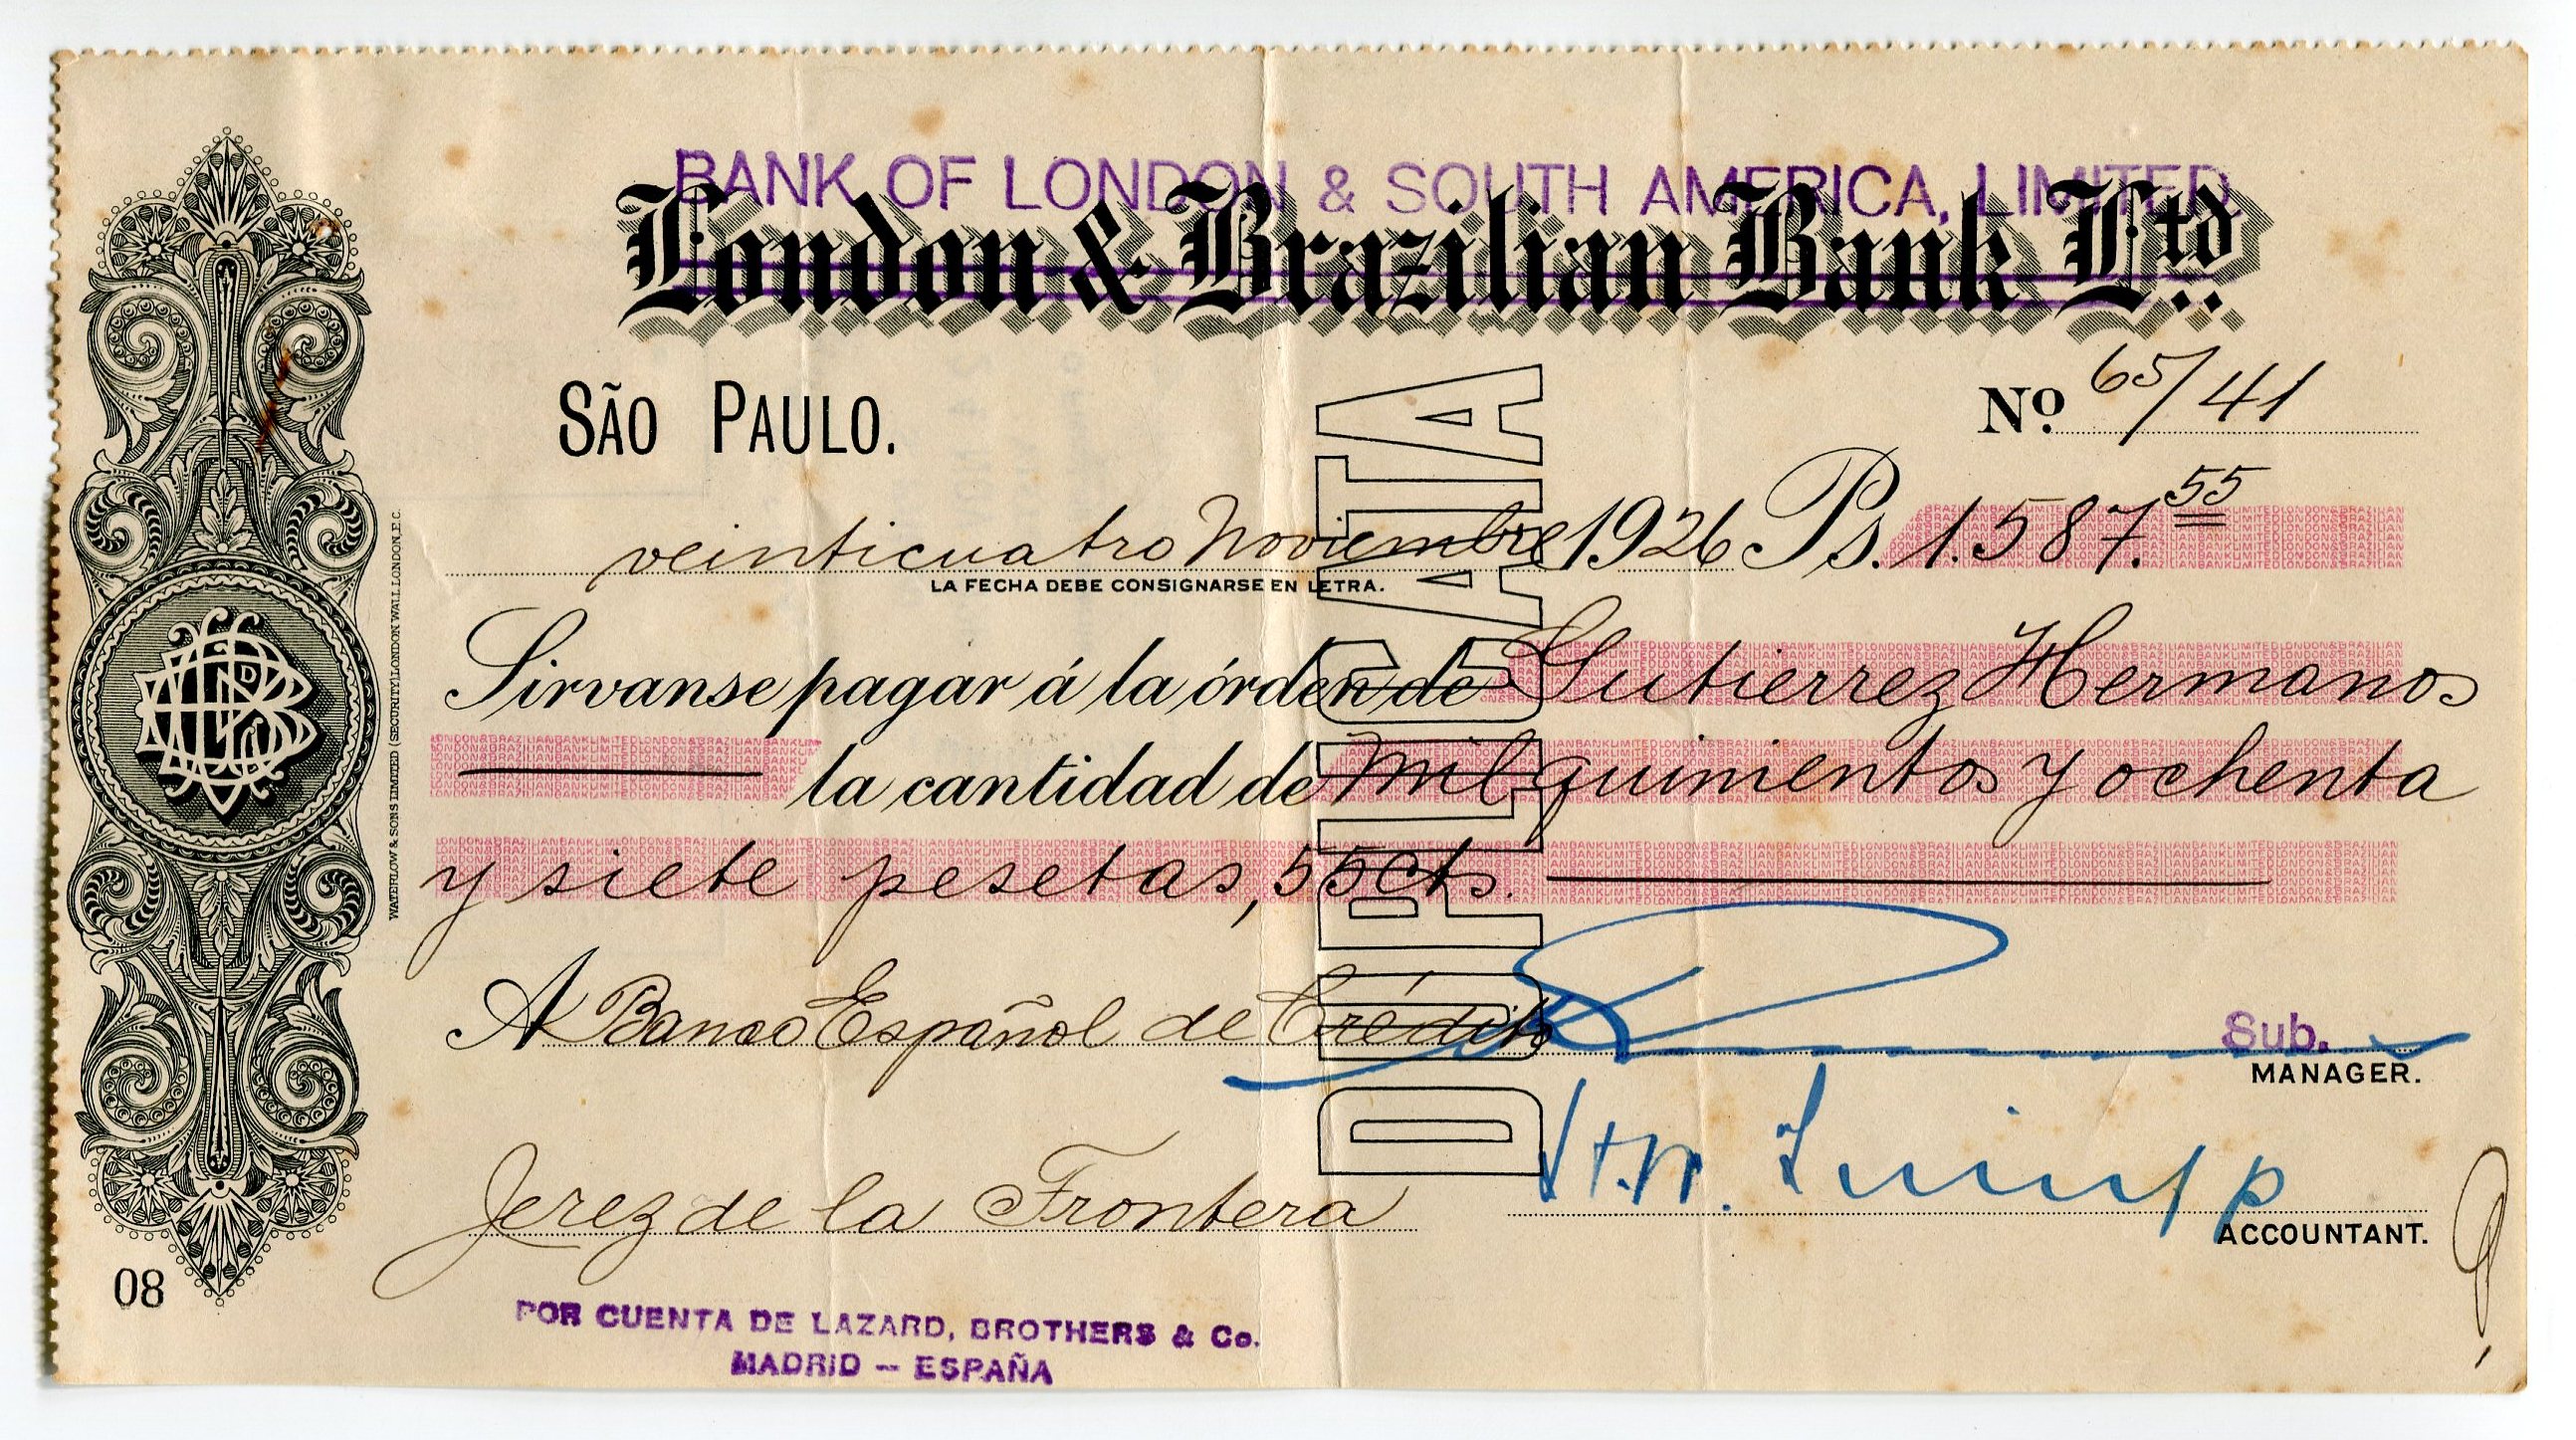 BANK OF LONDON & SOUTH AMERICA, LIMITED
London & Brazilian Bank Ltd.
SÃO PAULO.
Nº 65/41
veinticuatro Noviembre 1926 Ps. 1.587.55
LA FECHA DEBE CONSIGNARSE EN LETRA.
Sirvanse pagar á la órden de Gutierrez Hermanos
la cantidad de Mil quinientos y ochenta
y siete pesetas, 55 cts.
A Banco Español de Crédito
Sub.
MANAGER.
Jerez de la Frontera
ACCOUNTANT.
08
POR CUENTA DE LAZARD, BROTHERS & Co.
MADRID - ESPAÑA
DUPLICATA
WATERLOW & SONS LIMITED (SECURITY) LONDON WALL LONDON. E.C.